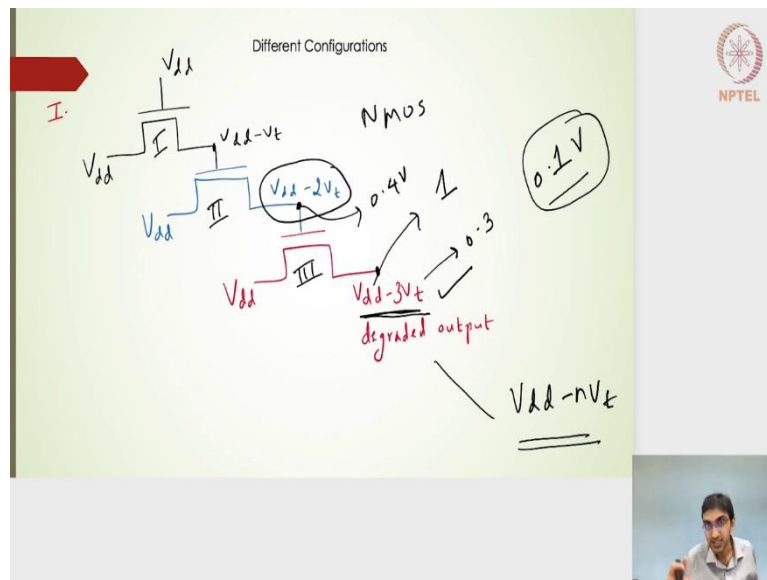 Different Configurations
NPTEL
I.
Vdd
Vdd
I
Vdd-Vt
NMOS
0.1V
Vdd
II
Vdd-2Vt
0.4V
1
Vdd
III
0.3
Vdd-3Vt
degraded output
Vdd-nVt